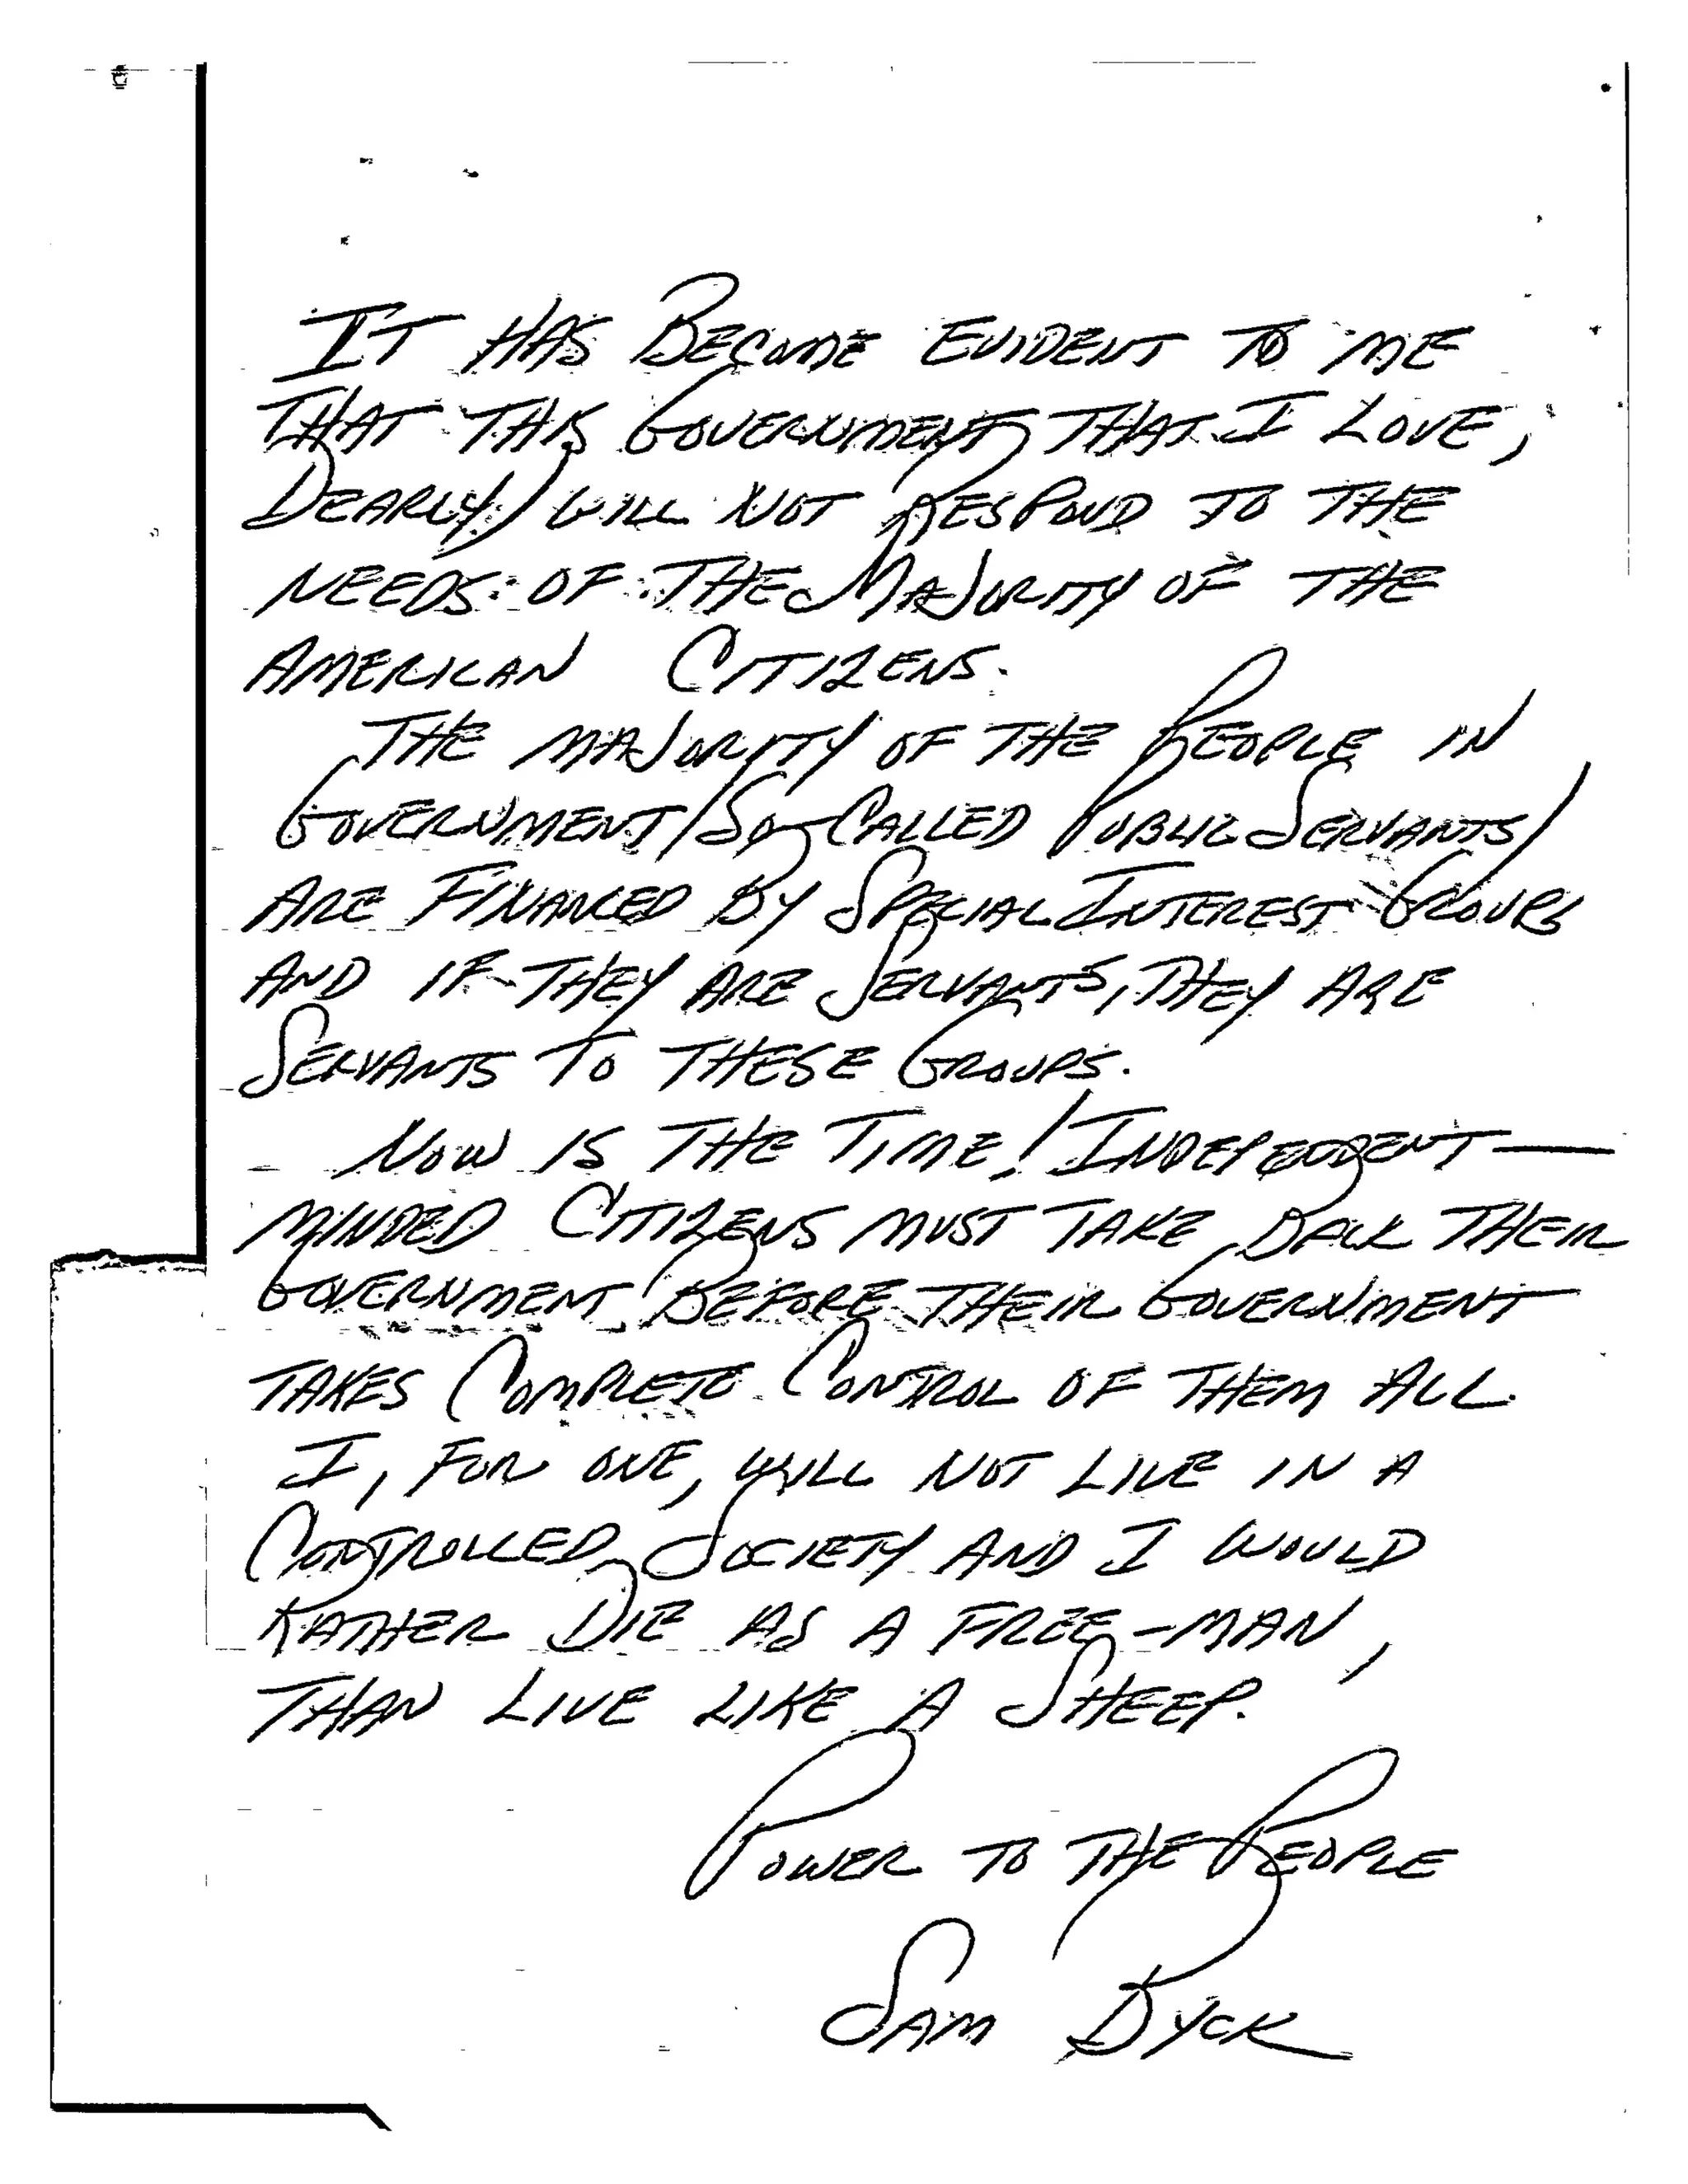 IT HAS BECOME EVIDENT TO ME
THAT THIS GOVERNMENT THAT I LOVE,
DEARLY, WILL NOT RESPOND TO THE
NEEDS OF THE MAJORITY OF THE
AMERICAN CITIZENS.
THE MAJORITY OF THE PEOPLE IN
GOVERNMENT/SO-CALLED PUBLIC SERVANTS/
ARE FINANCED BY SPECIAL INTEREST GROUPS
AND IF THEY ARE SERVANTS, THEY ARE
SERVANTS TO THESE GROUPS.
NOW IS THE TIME! INDEPENDENT—
MINDED CITIZENS MUST TAKE BACK THEIR
GOVERNMENT BEFORE THEIR GOVERNMENT
TAKES COMPLETE CONTROL OF THEM ALL.
I, FOR ONE, WILL NOT LIVE IN A
CONTROLLED SOCIETY AND I WOULD
RATHER DIE AS A FREE-MAN,
THAN LIVE LIKE A SHEEP.
POWER TO THE PEOPLE
SAM BYCK